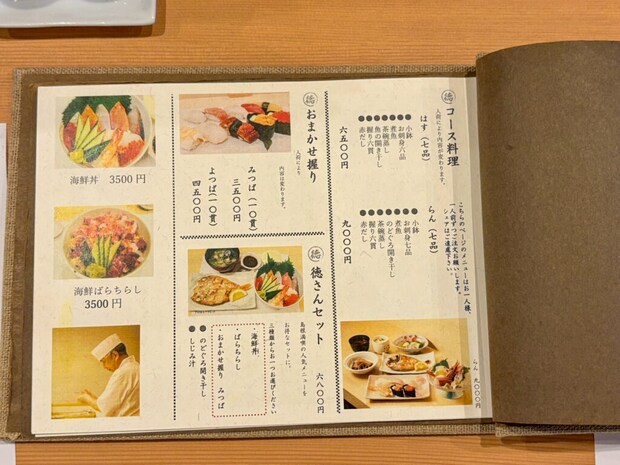 徳 コース料理
人前により内容が変わります。
はす（七品）
●小鉢
●お刺身六品
●煮魚
●茶碗蒸し
●魚の開き干し
●握り六貫
●赤だし
六五〇〇円
らん（七品）
●小鉢
●お刺身七品
●煮魚
●のどぐろ開き干し
●茶碗蒸し
●握り六貫
●赤だし
九〇〇〇円
こちらのページのメニューはお一人様、
一人前ずつご注文お願いします。
シェアはご遠慮下さい。
らん 九〇〇〇円
徳 おまかせ握り
人前により
内容は変わります。
みつば（一〇貫）
三五〇〇円
よつば（一〇貫）
四五〇〇円
徳 徳さんセット
島根満喫の人気メニューを
お得なセットに、
三種類からお一つお選びください
六八〇〇円
・海鮮丼
・ばらちらし
・おまかせ握り みつば
●のどぐろ開き干し
●しじみ汁
海鮮丼 3500円
海鮮ばらちらし
3500円